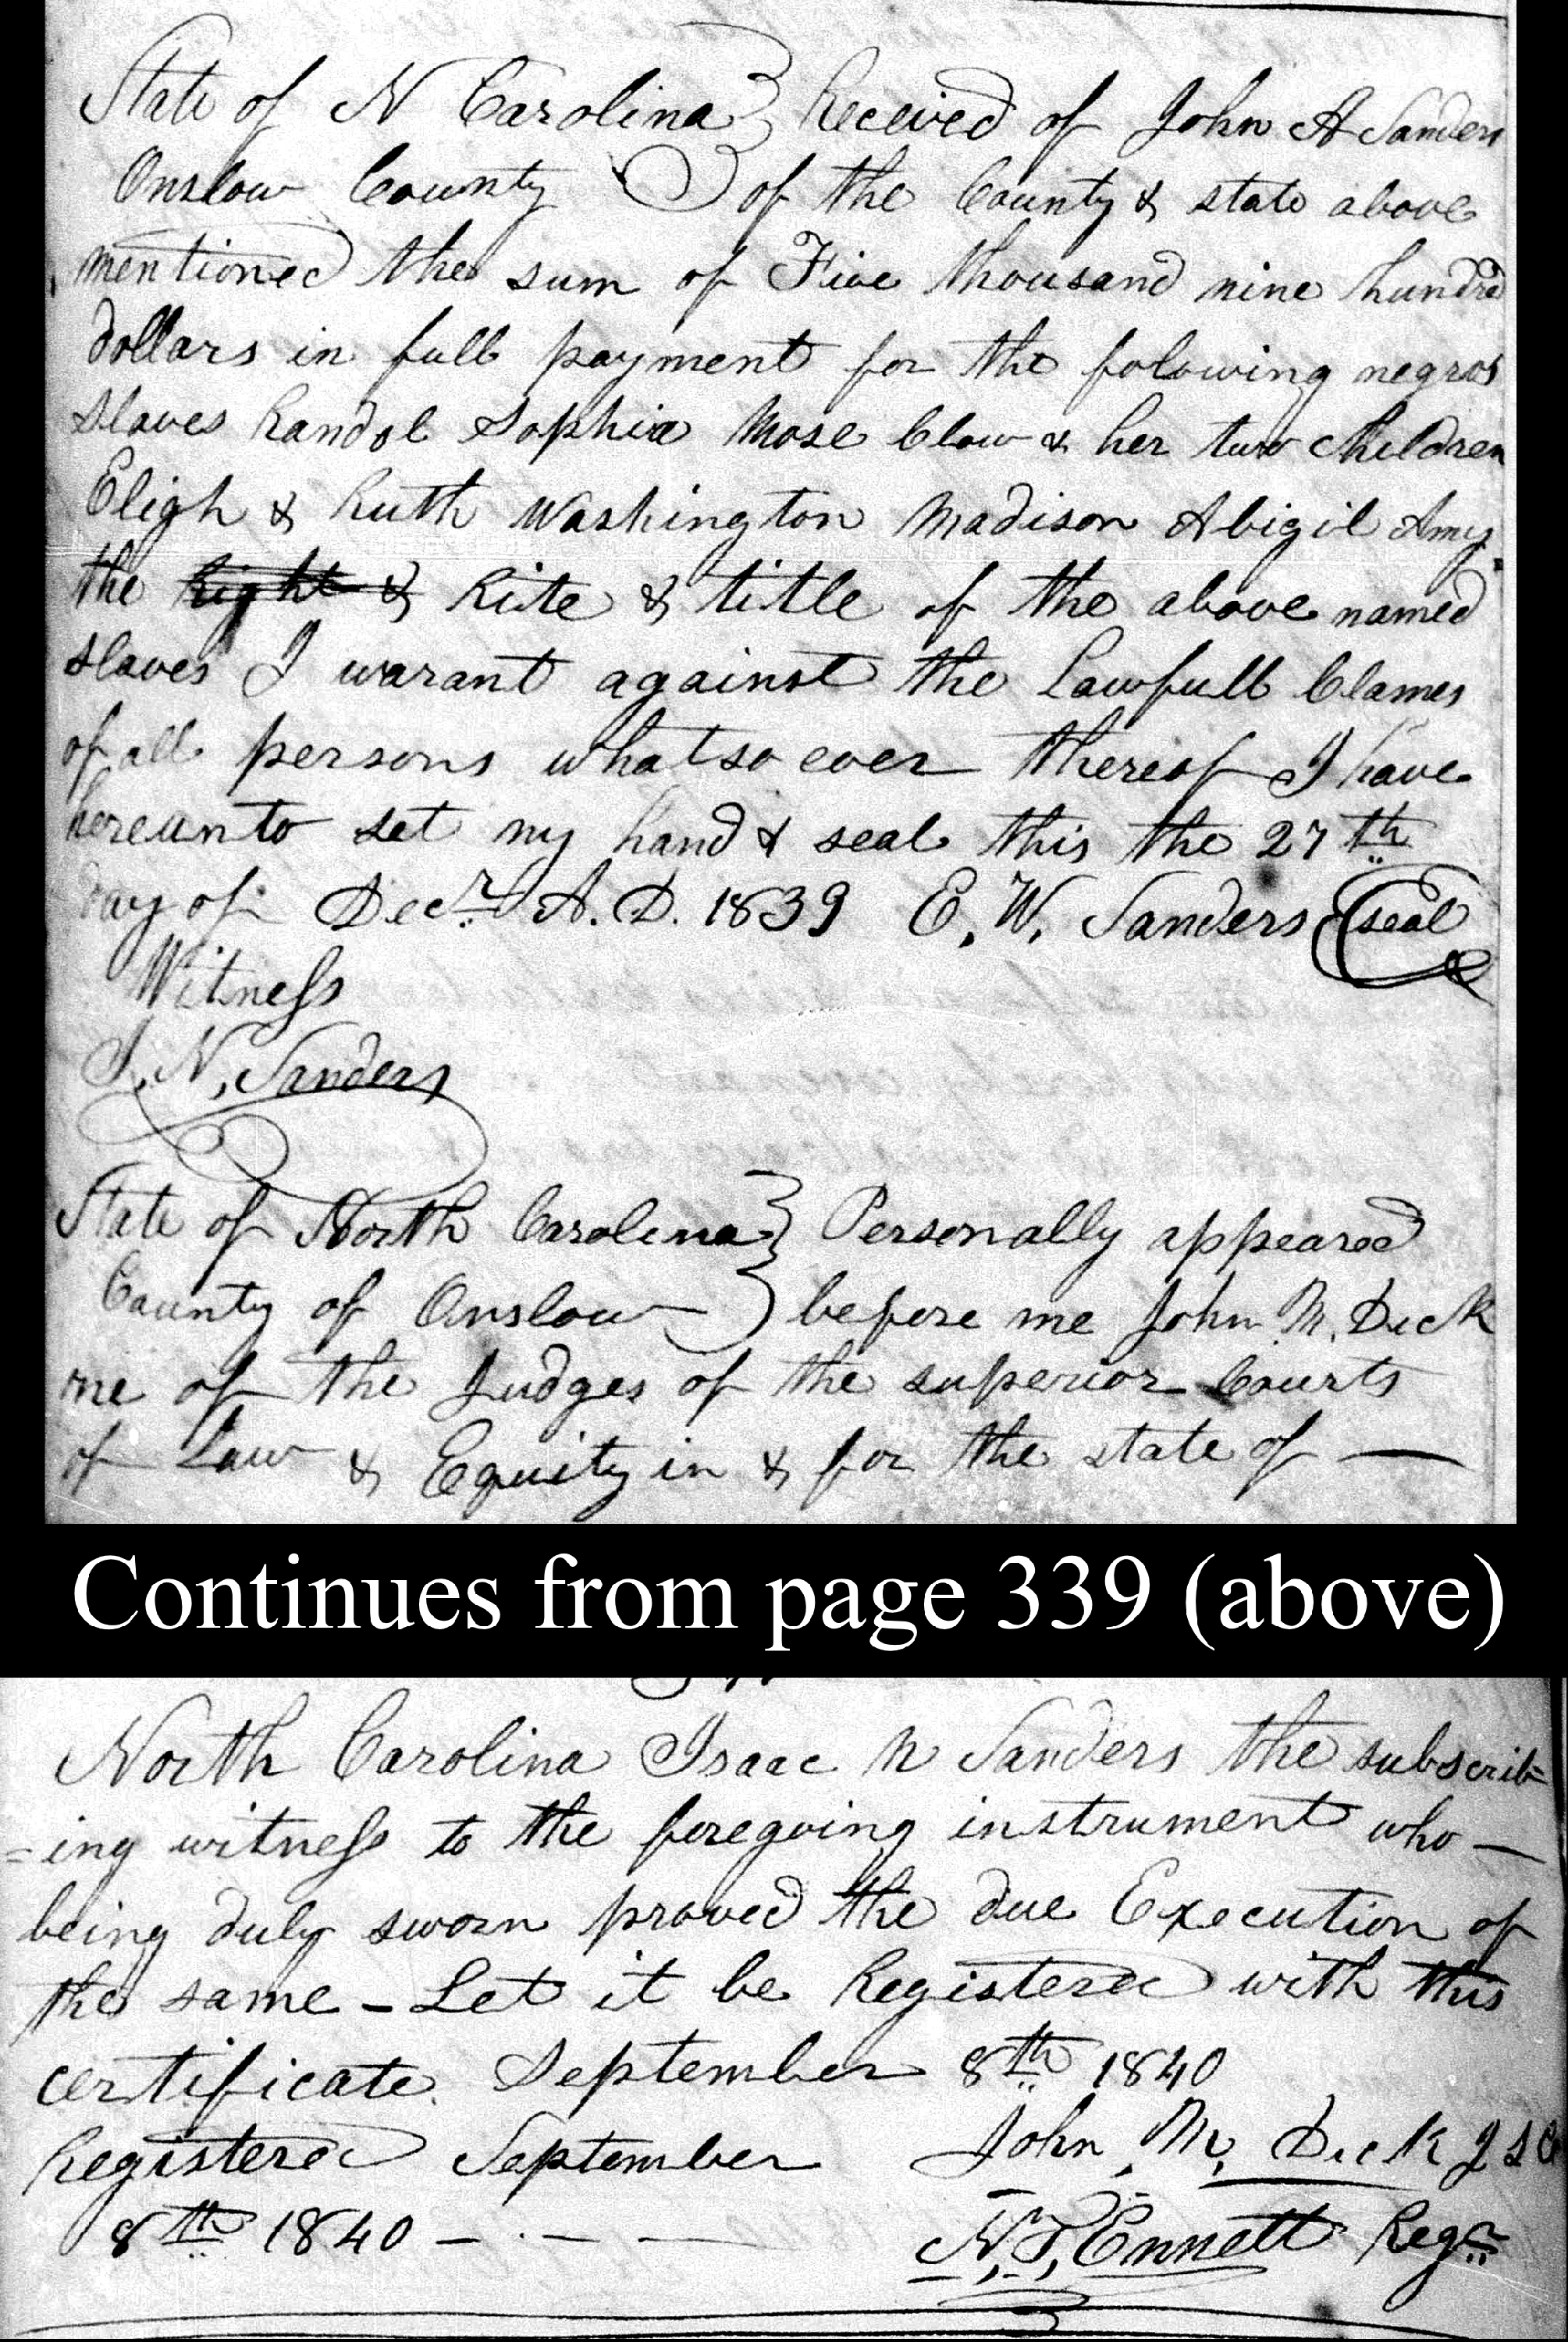 State of N Carolina } Received of John A Sanders
Onslow County } of the County & state above
mentioned the sum of Five thousand nine hundred
dollars in full payment for the folowing negros
slaves Randol Sophia Mose Clow & her two children
Eligh & Ruth Washington Madison Abigil Amy
the Right & Rite & title of the above named
slaves I warant against the Lawfull Clames
of all persons whatsoever thereof I have
hereunto set my hand & seal this the 27th
day of Decr A.D. 1839 E. W. Sanders (seal
Witness
I. N, Sanders
State of North Carolina } Personally appeared
County of Onslow } before me John M. Dick
one of the Judges of the superior Courts
of Law & Equity in & for the state of —
Continues from page 339 (above)
North Carolina Isaac N Sanders the subscrib=
=ing witness to the foregoing instrument who —
being duly sworn proved the due Execution of
the same - Let it be Registered with this
certificate September 8th 1840
Registered September John M. Dick J S C
8th 1840 — . — — N. T, Ennett Regr